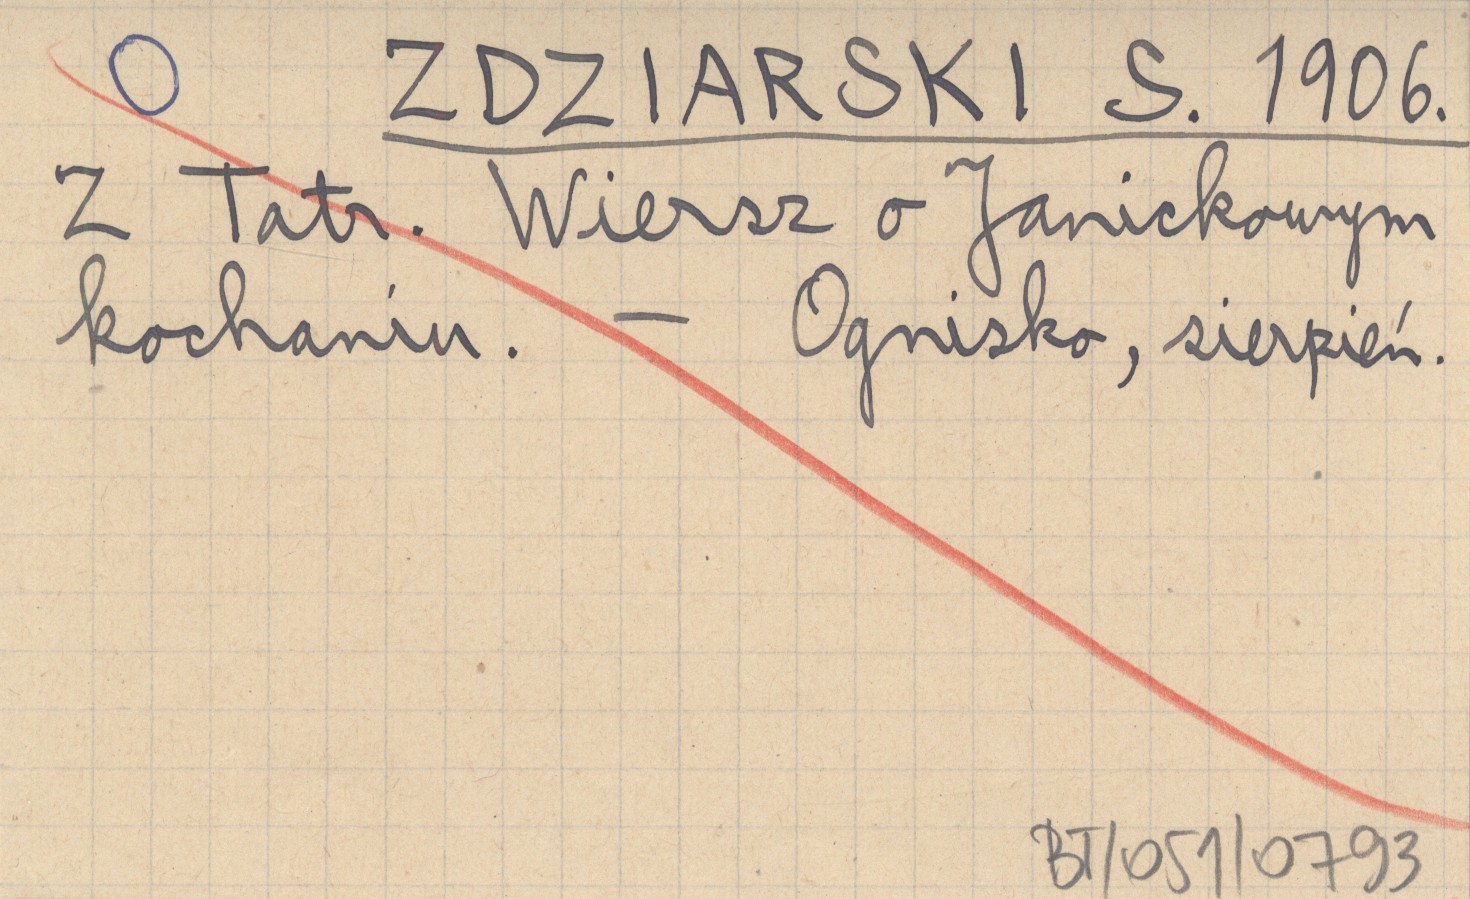 O ZDZIARSKI S. 1906.
Z Tatr. Wiersz o Janickowym
kochaniu. — Ognisko, sierpień.
BT/051/0793